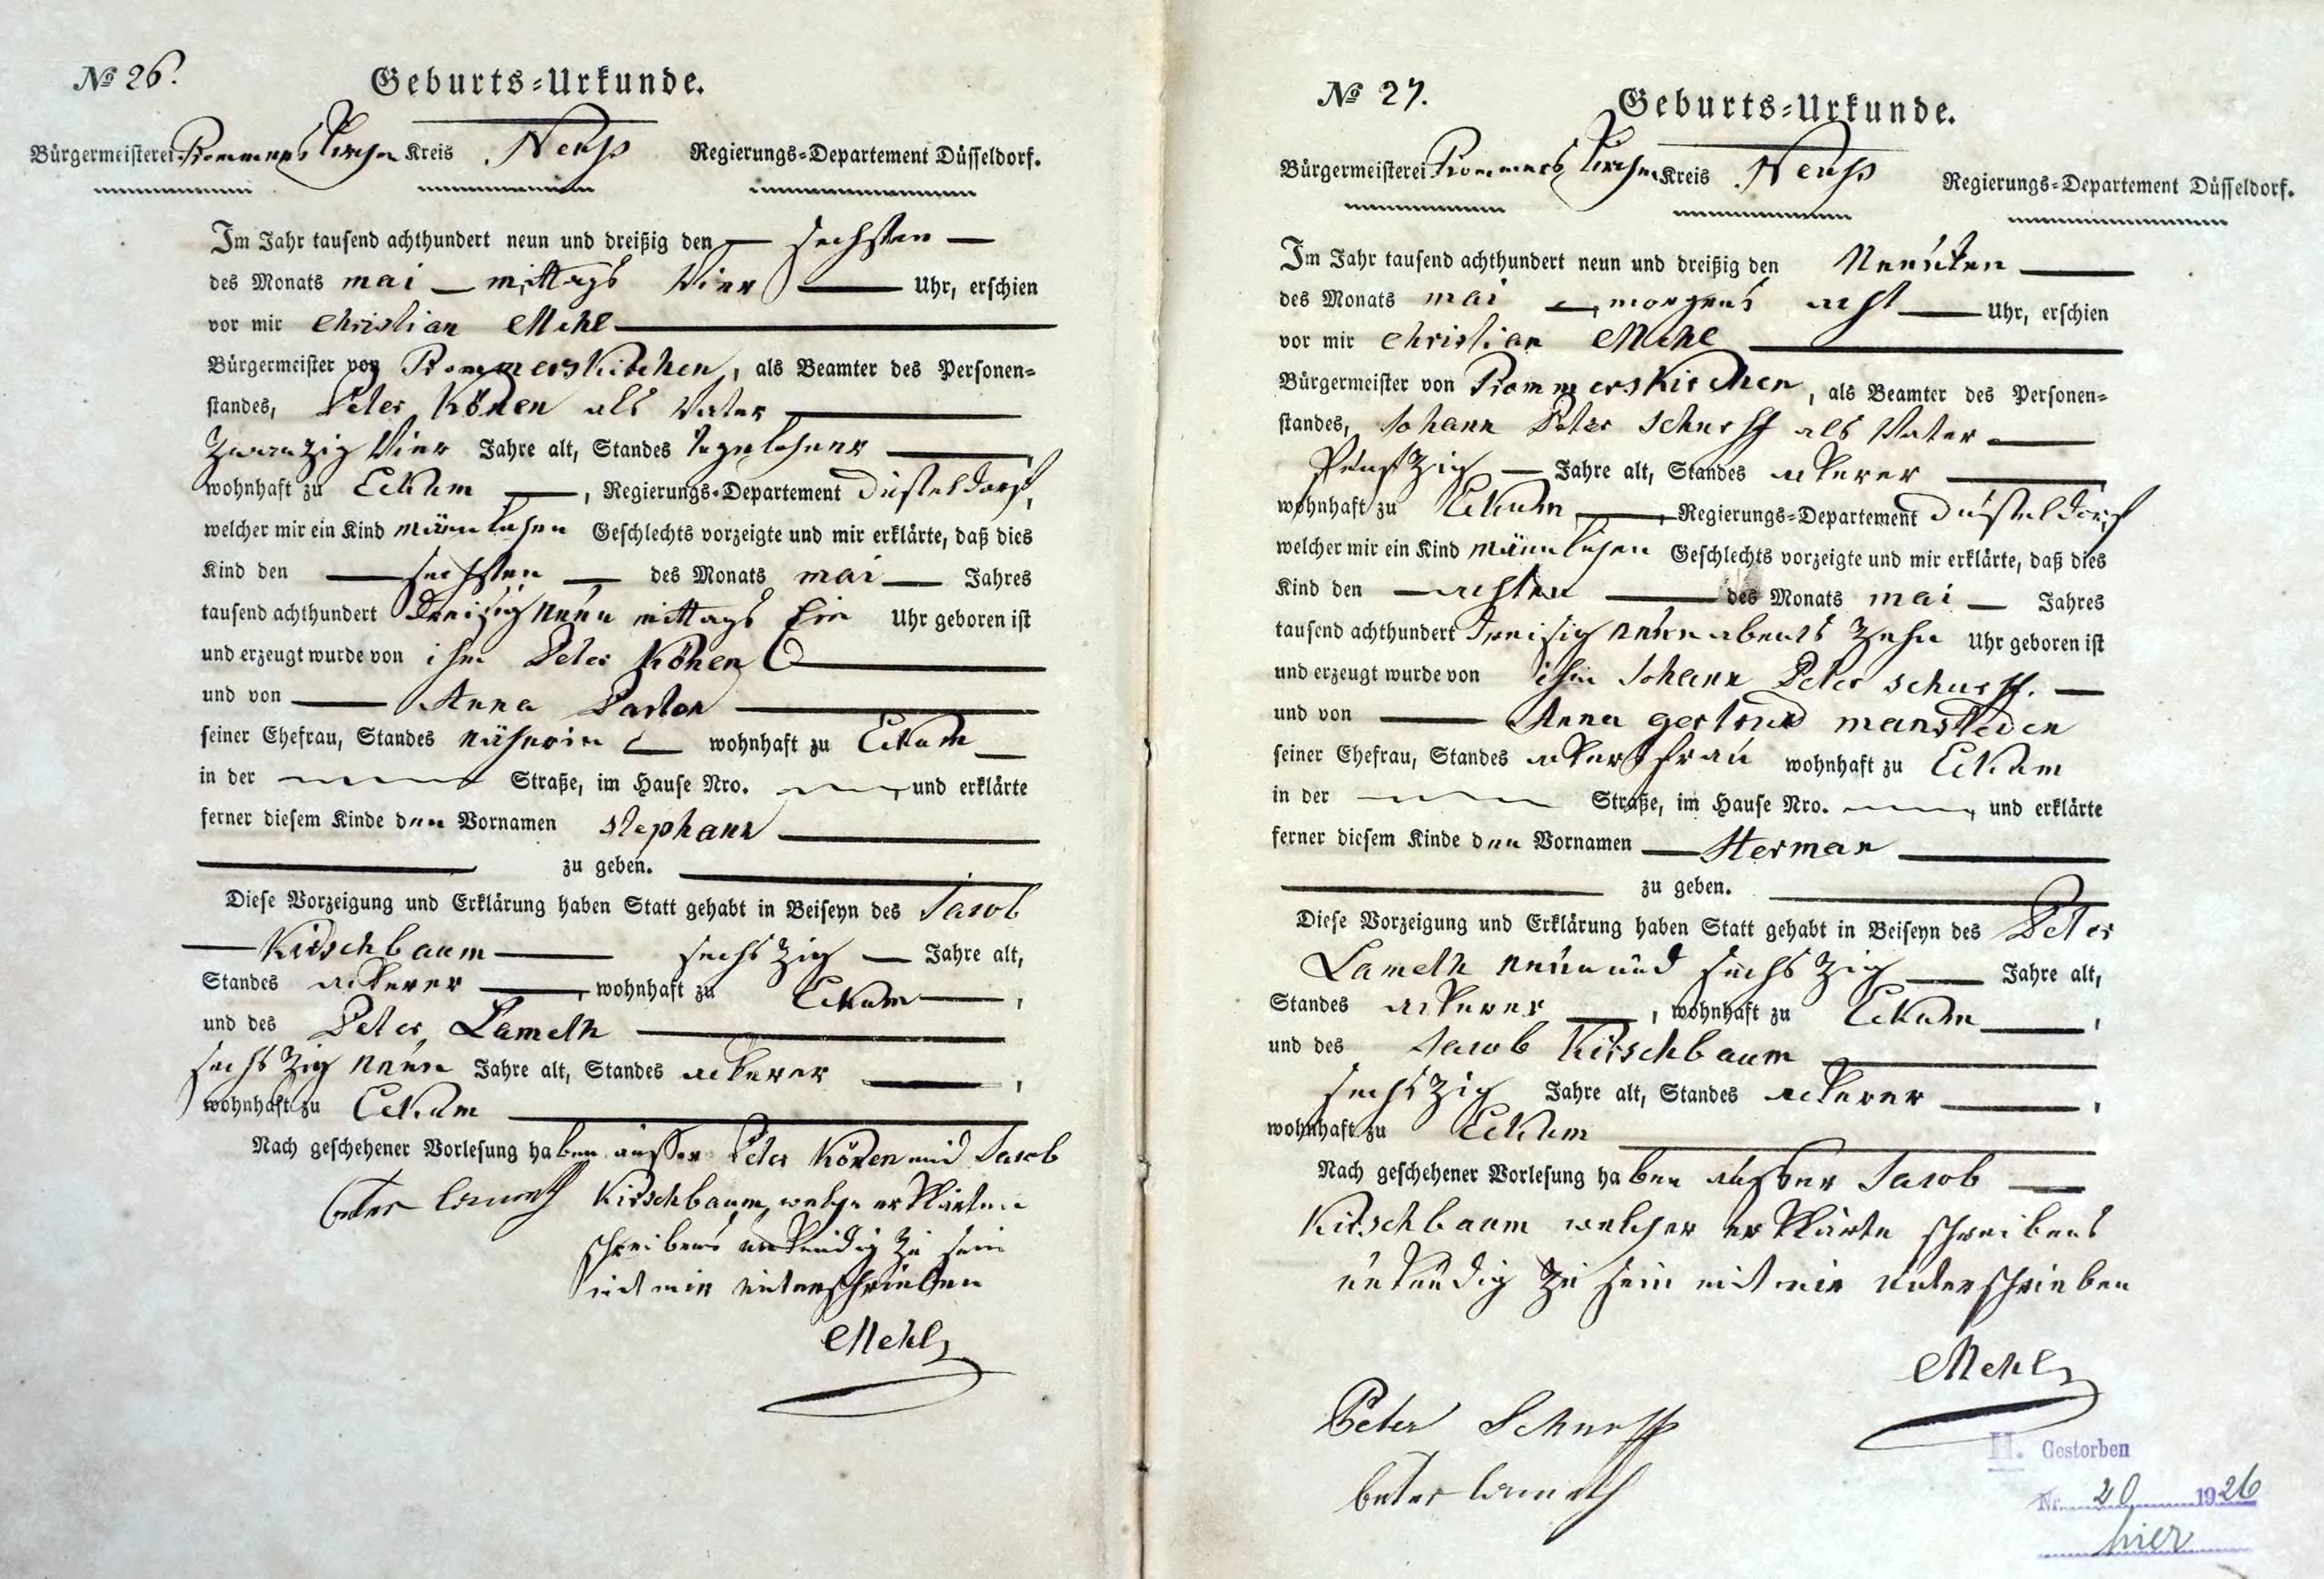 № 26.
Geburts-Urkunde.
Bürgermeisterei Rommerskirchen Kreis Neuß Regierungs-Departement Düsseldorf.
Im Jahr tausend achthundert neun und dreißig den sechsten
des Monats mai mittags Vier Uhr, erschien
vor mir Christian Mehl
Bürgermeister von Rommerskirchen, als Beamter des Personen-
standes, Peter Könen als Vater
zwanzig Vier Jahre alt, Standes tagelohner
wohnhaft zu Eckum, Regierungs-Departement Düsseldorf,
welcher mir ein Kind männlichen Geschlechts vorzeigte und mir erklärte, daß dies
Kind den sechsten des Monats mai Jahres
tausend achthundert dreisig neun mittags Ein Uhr geboren ist
und erzeugt wurde von ihm Peter Könen
und von Anna
seiner Ehefrau, Standes näherin wohnhaft zu Eckum
in der Straße, im Hause Nro. und erklärte
ferner diesem Kinde den Vornamen Stephann
zu geben.
Diese Vorzeigung und Erklärung haben Statt gehabt in Beiseyn des Jacob
Kirschbaum sechszig Jahre alt,
Standes ackerer, wohnhaft zu Eckum,
und des Peter Lameth
sechszig neun Jahre alt, Standes ackerer,
wohnhaft zu Eckum
Nach geschehener Vorlesung haben ausser Peter Könen und Jacob
Peter Lameth Kirschbaum, welche erklärten
schreibens unkundig zu sein
mit mir unterschrieben
Mehl
№ 27.
Geburts-Urkunde.
Bürgermeisterei Rommerskirchen Kreis Neuß Regierungs-Departement Düsseldorf.
Im Jahr tausend achthundert neun und dreißig den Neunten
des Monats mai morgens acht Uhr, erschien
vor mir Christian Mehl
Bürgermeister von Rommerskirchen, als Beamter des Personen-
standes, Johann Peter Schurff als Vater
Jahre alt, Standes ackerer
wohnhaft zu Eckum, Regierungs-Departement Düsseldorf
welcher mir ein Kind männlichen Geschlechts vorzeigte und mir erklärte, daß dies
Kind den achten des Monats mai Jahres
tausend achthundert dreisig neun abends zehn Uhr geboren ist
und erzeugt wurde von ihm Johann Peter Schurff.
und von Anna gertrud
seiner Ehefrau, Standes ackersfrau wohnhaft zu Eckum
in der Straße, im Hause Nro. und erklärte
ferner diesem Kinde den Vornamen Herman
zu geben.
Diese Vorzeigung und Erklärung haben Statt gehabt in Beiseyn des Peter
Lameth neun und sechszig Jahre alt,
Standes ackerer, wohnhaft zu Eckum,
und des Jacob Kirschbaum
sechszig Jahre alt, Standes ackerer,
wohnhaft zu Eckum
Nach geschehener Vorlesung haben ausser Jacob
Kirschbaum welcher erklärte schreibens
unkundig zu sein mit mir unterschrieben
Mehl
Peter Schurff
Peter Lameth
H. Gestorben
Nr. 20 1926
hier